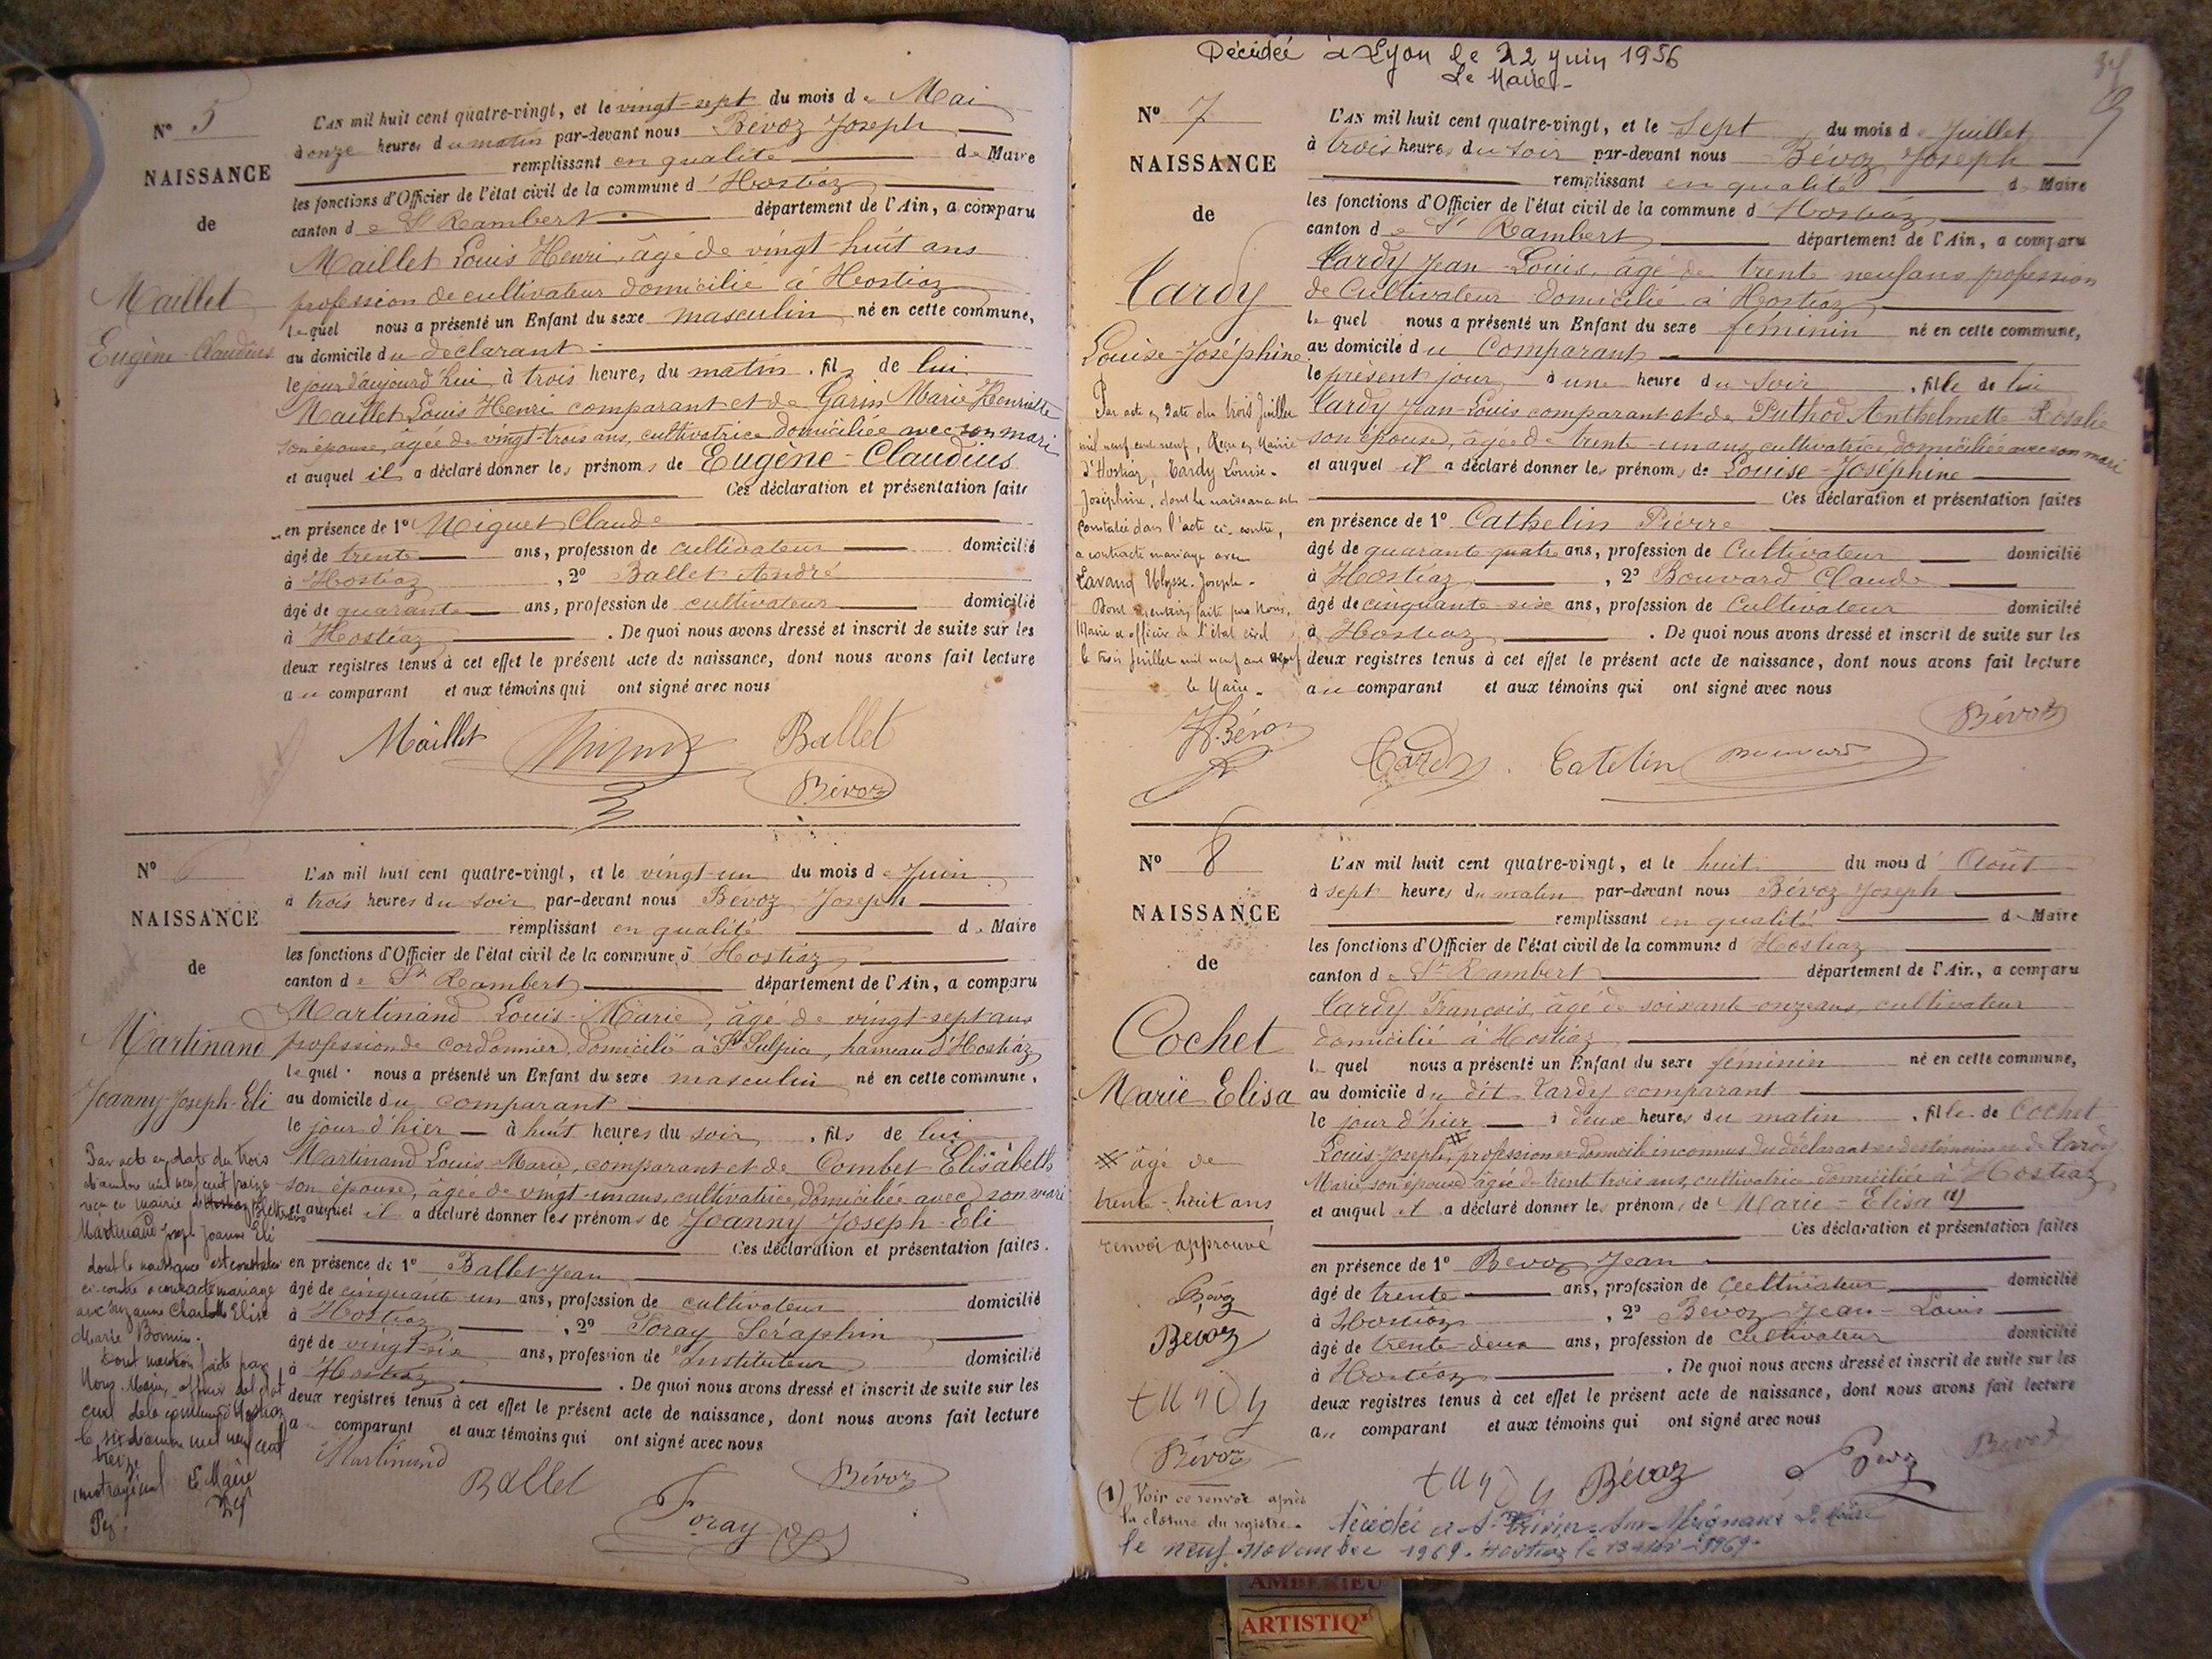 N° 5
NAISSANCE
de
Maillet
Eugène-Claudius
L'AN mil huit cent quatre-vingt, et le vingt-sept du mois de Mai
à onze heures du matin par-devant nous Bévoz Joseph
remplissant en qualité de Maire
les fonctions d'Officier de l'état civil de la commune d'Hostiaz
canton de St Rambert département de l'Ain, a comparu
Maillet Louis Henri, âgé de vingt-huit ans
profession de cultivateur domicilié à Hostiaz
lequel nous a présenté un Enfant du sexe masculin né en cette commune,
au domicile du déclarant
le jour d'aujourd'hui à trois heures du matin, fils de lui
Maillet Louis Henri comparant et de Garin Marie Henriette
son épouse, âgée de vingt-trois ans, cultivatrice domiciliée avec son mari
et auquel il a déclaré donner les prénoms de Eugène-Claudius
Ces déclaration et présentation faites
en présence de 1° Niguet Claude
âgé de trente ans, profession de cultivateur domicilié
à Hostiaz, 2° Ballet André
âgé de quarante ans, profession de cultivateur domicilié
à Hostiaz. De quoi nous avons dressé et inscrit de suite sur les
deux registres tenus à cet effet le présent acte de naissance, dont nous avons fait lecture
au comparant et aux témoins qui ont signé avec nous
Maillet Ballet
Bévoz
N° 6
NAISSANCE
de
Martinand
Joanny-Joseph-Eli
L'AN mil huit cent quatre-vingt, et le vingt-un du mois de Juin
à trois heures du soir par-devant nous Bévoz Joseph
remplissant en qualité de Maire
les fonctions d'Officier de l'état civil de la commune d'Hostiaz
canton de St Rambert département de l'Ain, a comparu
Martinand Louis-Marie, âgé de vingt-sept ans
profession de cordonnier, domicilié à St Sulpice, hameau d'Hostiaz
lequel nous a présenté un Enfant du sexe masculin né en cette commune,
au domicile du comparant
le jour d'hier à huit heures du soir, fils de lui
Martinand Louis-Marie, comparant et de Combet Elisabeth
son épouse, âgée de vingt-un ans, cultivatrice, domiciliée avec son mari
et auquel il a déclaré donner les prénoms de Joanny Joseph-Eli
Ces déclaration et présentation faites
en présence de 1° Ballet Jean
âgé de cinquante un ans, profession de cultivateur domicilié
à Hostiaz, 2° Foray Séraphin
âgé de vingt-six ans, profession de Instituteur domicilié
à Hostiaz. De quoi nous avons dressé et inscrit de suite sur les
deux registres tenus à cet effet le présent acte de naissance, dont nous avons fait lecture
au comparant et aux témoins qui ont signé avec nous
Martinand Ballet Bévoz
Foray
Par acte en date du trois
mil neuf cent treize
reçu en mairie de
Martinand Joseph Joanni Eli
dont la naissance est constatée
ci-contre a contracté mariage
avec Suzanne Charlotte Elise
Marie Bonnin.
Dont mention faite par
Nous, Maire, officier de l'état
civil de la commune d'Hostiaz
le six mil neuf cent
treize
Le Maire
Décédée à Lyon le 22 Juin 1956
Le Maire
N° 7
NAISSANCE
de
Tardy
Louise-Joséphine
L'AN mil huit cent quatre-vingt, et le Sept du mois de Juillet
à trois heures du soir par-devant nous Bévoz Joseph
remplissant en qualité de Maire
les fonctions d'Officier de l'état civil de la commune d'Hostiaz
canton de St Rambert département de l'Ain, a comparu
Tardy Jean-Louis, âgé de trente neuf ans profession
de Cultivateur domicilié à Hostiaz
lequel nous a présenté un Enfant du sexe féminin né en cette commune,
au domicile du Comparant
le présent jour à une heure du soir, fille de lui
Tardy Jean-Louis comparant et de Puthod Anthelmette Rosalie
son épouse, âgée de trente-un ans, cultivatrice, domiciliée avec son mari
et auquel il a déclaré donner les prénoms de Louise-Joséphine
Ces déclaration et présentation faites
en présence de 1° Cathelin Pierre
âgé de quarante quatre ans, profession de Cultivateur domicilié
à Hostiaz, 2° Bouvard Claude
âgé de cinquante six ans, profession de Cultivateur domicilié
à Hostiaz. De quoi nous avons dressé et inscrit de suite sur les
deux registres tenus à cet effet le présent acte de naissance, dont nous avons fait lecture
au comparant et aux témoins qui ont signé avec nous
Bévoz
Tardy Catelin Bouvard
Par acte en date du trois Juillet
mil neuf cent neuf, Reçu en Mairie
d'Hostiaz, Tardy Louise-
Joséphine, dont la naissance est
constatée dans l'acte ci-contre,
a contracté mariage avec
Lavand Ulysse-Joseph-
Dont mention faite par Nous,
Maire et officier de l'état civil
le trois Juillet mil neuf cent neuf
le Maire.
J. Bévoz
N° 8
NAISSANCE
de
Cochet
Marie Elisa
L'AN mil huit cent quatre-vingt, et le huit du mois d'Août
à sept heures du matin par-devant nous Bévoz Joseph
remplissant en qualité de Maire
les fonctions d'Officier de l'état civil de la commune d'Hostiaz
canton de St Rambert département de l'Ain, a comparu
Tardy François, âgé de soixante-onze ans, cultivateur
domicilié à Hostiaz
lequel nous a présenté un Enfant du sexe féminin né en cette commune,
au domicile du dit Tardy comparant
le jour d'hier à deux heures du matin, fille de Cochet
Louis-Joseph, # profession et domicile inconnus du déclarant et des témoins et de Tardy
Marie son épouse âgée de trente trois ans, cultivatrice domiciliée à Hostiaz
et auquel il a déclaré donner les prénoms de Marie-Elisa (1)
Ces déclaration et présentation faites
en présence de 1° Bevoz Jean
âgé de trente ans, profession de Cultivateur domicilié
à Hostiaz, 2° Bévoz Jean-Louis
âgé de trente-deux ans, profession de Cultivateur domicilié
à Hostiaz. De quoi nous avons dressé et inscrit de suite sur les
deux registres tenus à cet effet le présent acte de naissance, dont nous avons fait lecture
au comparant et aux témoins qui ont signé avec nous
tardy Bévoz Bévoz Bévoz
# âgé de
trente-huit ans
renvoi approuvé
Bévoz
Bévoz
tardy
Bévoz
(1) Voir ce renvoi après
la clôture du registre.
décédée à St Trivier-sur-Moignans Le Maire
le neuf Novembre 1969. Hostiaz le 13 Nov. 1969.
AMBERIEU
ARTISTIQ